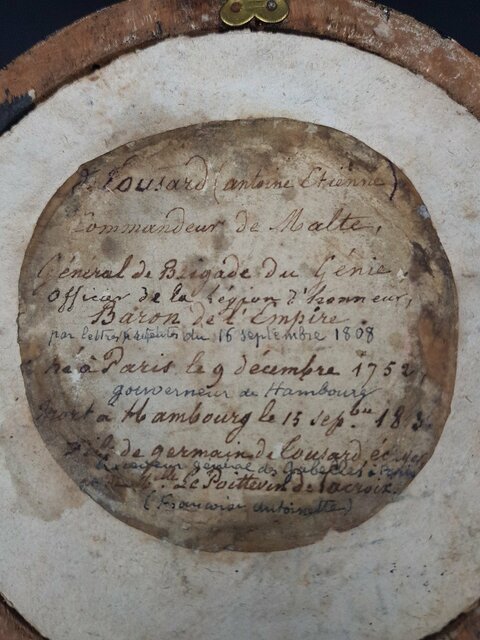 de Tousard (antoine Etienne)
Commandeur de Malte,
Général de Brigade du Génie.
Officier de la Légion d'honneur,
Baron de l'Empire.
par lettres patentes du 16 septembre 1808
né à Paris le 9 décembre 1752,
gouverneur de Hambourg
mort à Hambourg le 15 sep.
de germain de tousard
Receveur général des Gabelles à
Le Poittevin de Lacroix.
(Françoise antoinette)